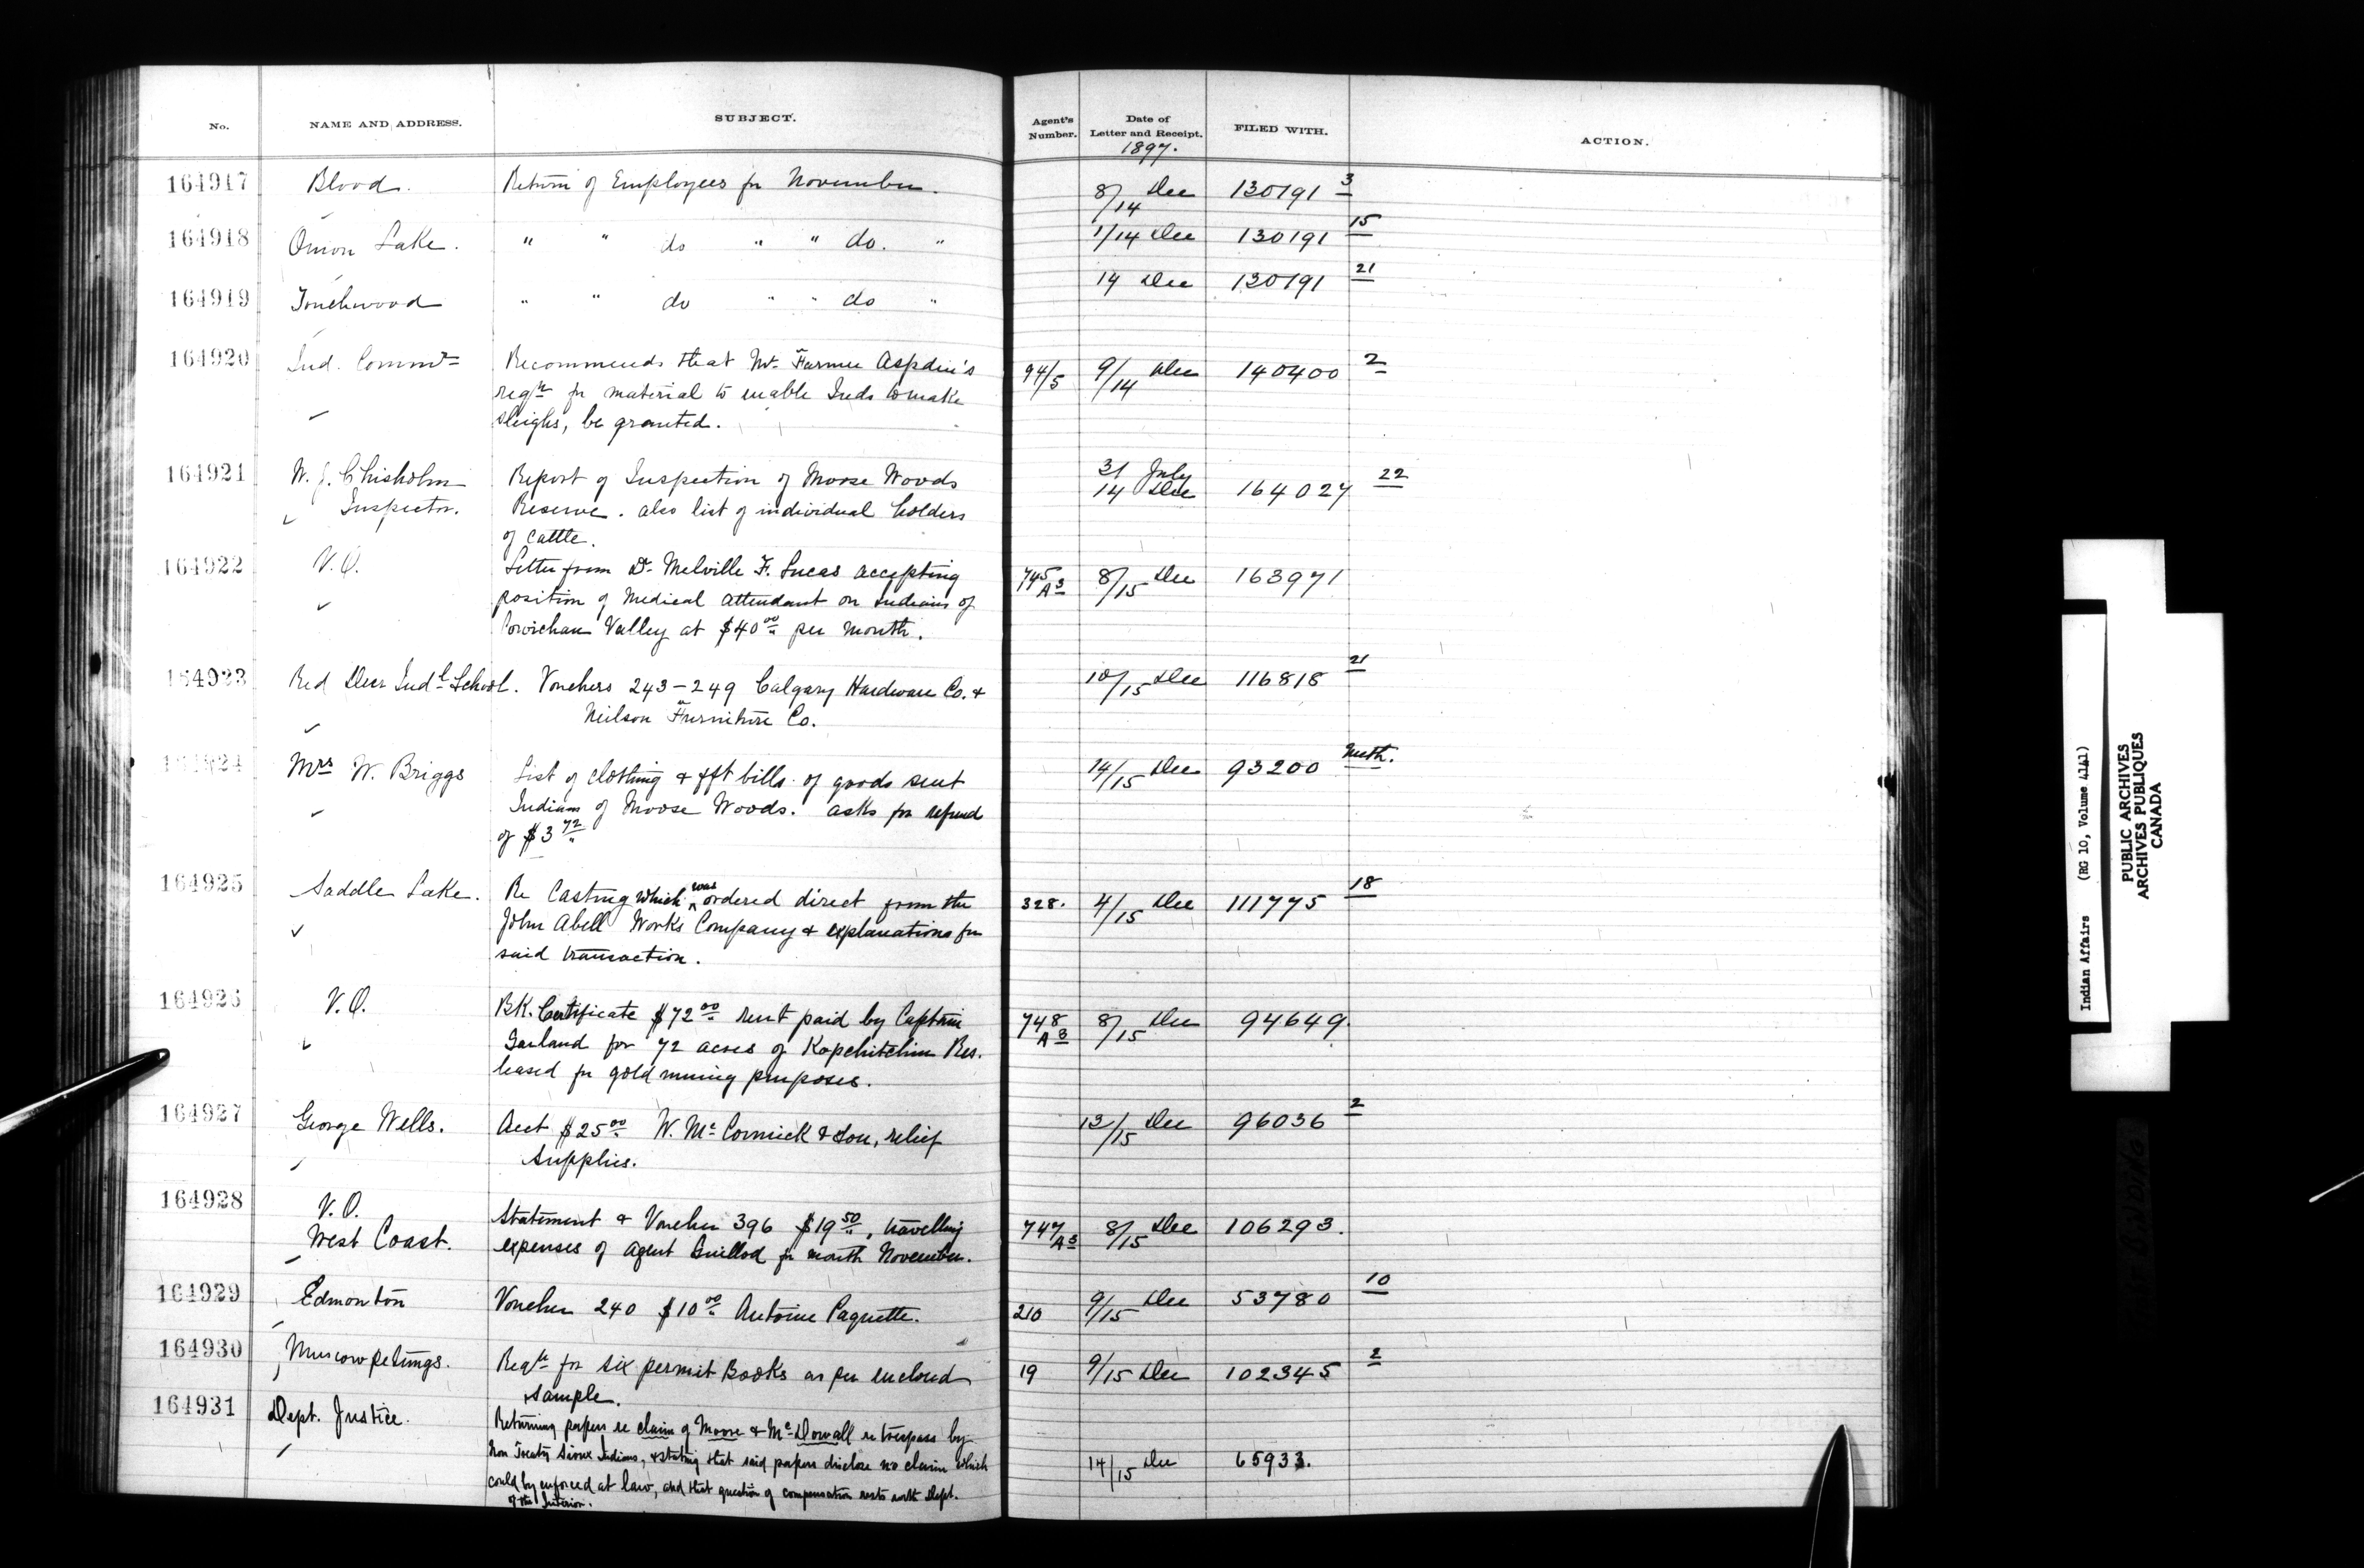 No. NAME AND ADDRESS. SUBJECT. Agent's Number. Date of Letter and Receipt. FILED WITH. ACTION.
1897.
164917 Blood. Return of Employees for November. 8/14 Dec 130191 3
164918 Onion Lake. " " do " " do. " 1/14 Dec 130191 15
164919 Touchwood " " do " " do " 14 Dec 130191 21
164920 Ind. Commr Recommends that Mr. Farmer Aspdin's 94/5 9/14 Dec 140400 2
reqn for material to enable Inds to make
sleighs, be granted.
164921 W. J. Chisholm Report of Inspection of Moose Woods 31 July
Inspector. Reserve. also list of individual holders 14 Dec 164027 22
of cattle.
164922 V.O. Letter from Dr. Melville F. Lucas accepting 745 A3 8/15 Dec 163971
position of Medical Attendant on Indians of
Cowichan Valley at $40 00 per month.
164923 Red Deer Indl School. Vouchers 243-249 Calgary Hardware Co. & 10/15 Dec 116818 21
Neilson Furniture Co.
164924 Mrs W. Briggs List of clothing & fft bills of goods sent 14/15 Dec 93200
Indians of Moose Woods. asks for refund
of $3 72
164925 Saddle Lake. Re Casting which was ordered direct from the 328. 4/15 Dec 111775 18
John Abell Works Company & explanations for
said transaction.
164926 V.O. BK. Certificate $72 00 rent paid by Captain 748 A3 8/15 Dec 94649.
Garland for 72 acres of Kapchitchin Res.
leased for gold mining purposes.
164927 George Wells. Acct $25 00 W. McCormick & Son, relief 13/15 Dec 96036 2
Supplies.
164928 V.O. Statement & Voucher 396 $19 50, travelling 747/A3 8/15 Dec 106293.
West Coast. expenses of Agent Guillod for month November.
164929 Edmonton Voucher 240 $10 00 Antoine Paquette. 210 9/15 Dec 53780 10
164930 Muscowpetungs. Reqn for six permit Books as per enclosed 19 9/15 Dec 102345 2
sample.
164931 Dept. Justice. Returning papers re claim of Moore & McDowall re trespass by
Non Treaty Sioux Indians, & stating that said papers disclose no claim which 14/15 Dec 65933.
could by enforced at law, and that question of compensation rests with Dept.
of the Interior.
Indian Affairs (RG 10, Volume 4141)
PUBLIC ARCHIVES
ARCHIVES PUBLIQUES
CANADA